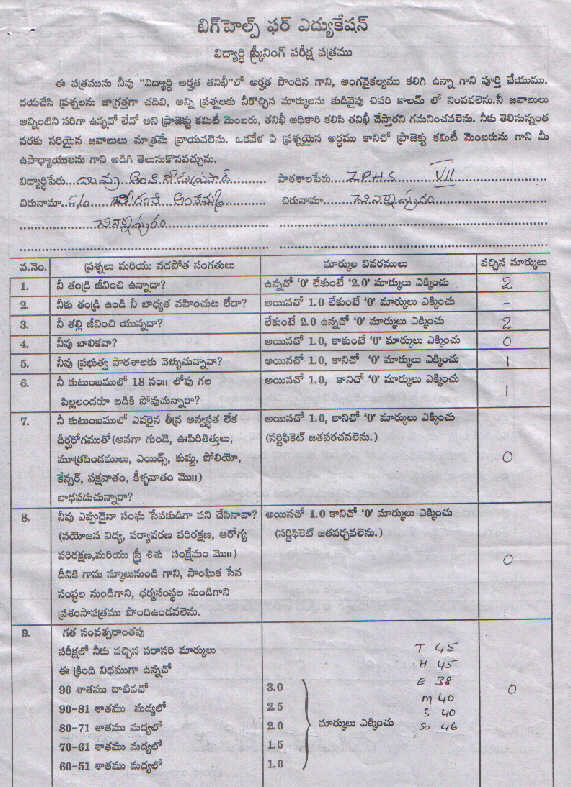 బిగ్‌హెల్ప్ ఫర్ ఎద్యుకేషన్
విద్యార్థి స్క్రీనింగ్ పరీక్ష పత్రము
ఈ పత్రమును నీవు "విద్యార్థి అర్హత తనిఖీ"లో అర్హత పొందిన గాని, అంగవైకల్యము కలిగి ఉన్నా గాని పూర్తి చేయుము.
దయచేసి ప్రశ్నలను జాగ్రత్తగా చదివి, అన్ని ప్రశ్నలకు నీకొచ్చిన మార్కులను కుడివైపు చివరి కాలమ్ లో నింపవలెను.నీ జవాబులు
అన్నింటిని సరిగా ఉన్నవో లేవో అని ప్రాజెక్టు కమిటీ మెంబరు, తనిఖీ అధికారి కలిసి తనిఖీ చేస్తారని గమనించవలెను. నీకు తెలిసినంత
వరకు సరియైన జవాబులు మాత్రమే వ్రాయవలెను. ఒకవేళ ఏ ప్రశ్నయైన అర్థము కానిచో ప్రాజెక్టు కమిటీ మెంబరును గాని మీ
ఉపాధ్యాయులను గాని అడిగి తెలుసుకొనవచ్చును.
విద్యార్థిపేరు... పాఠశాలపేరు... Z.P.H.S VII
చిరునామా.. S/o చిరునామా..
వ.నెం. ప్రశ్నలు మరియు నడపోత సంగతులు మార్కుల వివరములు వచ్చిన మార్కులు
1. నీ తండ్రి జీవించి ఉన్నాడా? ఉన్నచో '0' లేకుంటే '2.0' మార్కులు ఎక్కించు 2
2. నీకు తండ్రి ఉండి నీ బాధ్యత వహించుట లేదా? అయినచో 1.0 లేకుంటే '0' మార్కులు ఎక్కించు -
3. నీ తల్లి జీవించి యున్నదా? లేకుంటే 2.0 ఉన్నచో '0' మార్కులు ఎక్కించు 2
4. నీవు బాలికవా? అయినచో 1.0, కాకుంటే '0' మార్కులు ఎక్కించు 0
5. నీవు ప్రభుత్వ పాఠశాలకు వెళ్ళుచున్నావా? అయినచో 1.0, కానిచో '0' మార్కులు ఎక్కించు 1
6. నీ కుటుంబములో 18 సం॥ లోపు గల అయినచో 1.0, కానిచో '0' మార్కులు ఎక్కించు 1
పిల్లలందరూ బడికి పోవుచున్నారా?
7. నీ కుటుంబములో ఎవరైన తీవ్ర అస్వస్థత లేక అయినచో 1.0, కానిచో '0' మార్కులు ఎక్కించు
దీర్ఘరోగముతో(అనగా గుండె, ఊపిరితిత్తులు, (సర్టిఫికెట్ జతపరచవలెను.)
మూత్రపిండములు, ఎయిడ్స్, కుష్ఠు, పోలియో, 0
కేన్సర్, పక్షవాతం, కీళ్ళవాతం మొ॥)
బాధపడుచున్నారా?
8. నీవు ఎప్పుడైనా సంఘ సేవకుడిగా పని చేసినావా? అయినచో 1.0 కానిచో '0' మార్కులు ఎక్కించు
(వయోజన విద్య, పర్యావరణ పరిరక్షణ, ఆరోగ్య (సర్టిఫికెట్ జతపర్చవలెను.)
పరిరక్షణ,మరియు స్త్రీ శిశు సంక్షేమం మొ॥)
దీనికి గాను స్కూలునుండి గాని, సాంఘిక సేవ 0
సంస్థల నుండిగాని, ధర్మసంస్థల నుండిగాని
ప్రశంసాపత్రము పొందిఉండవలెను.
9. గత సంవత్సరాంతపు
పరీక్షలో నీకు వచ్చిన సరాసరి మార్కులు T 45
ఈ క్రింది విధముగా ఉన్నచో H 45
90 శాతము దాటినచో 3.0 E 38 0
90-81 శాతము మధ్యలో 2.5 M 40
80-71 శాతము మధ్యలో 2.0 మార్కులు ఎక్కించు S 40
70-61 శాతము మధ్యలో 1.5 So 46
60-51 శాతము మధ్యలో 1.0